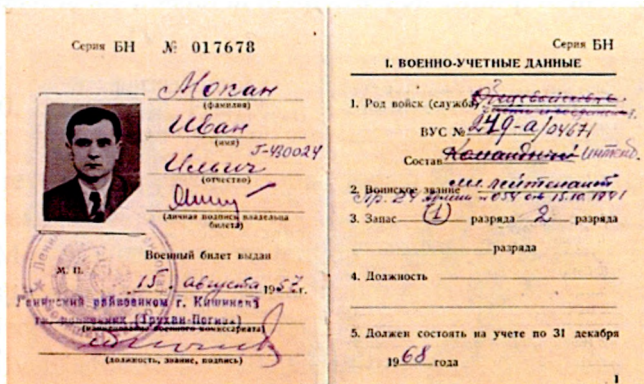 Серия БН № 017678
Мокан
(фамилия)
Иван
(имя)
Г-430024
Ильич
(отчество)
(личная подпись владельца
билета)
Военный билет выдан
М. П.
15 августа 1957 г.
Ленинский райвоенком г. Кишинева
(наименование военного комиссариата)
(должность, звание, подпись)
Серия БН
I. ВОЕННО-УЧЕТНЫЕ ДАННЫЕ
1. Род войск (служба)
ВУС № 249-а/04671
Состав Командный интенд.
2. Воинское звание мл. лейтенант
Пр. 15.10.1941
3. Запас 1 разряда 2 разряда
разряда
4. Должность
5. Должен состоять на учете по 31 декабря
1968 года
1